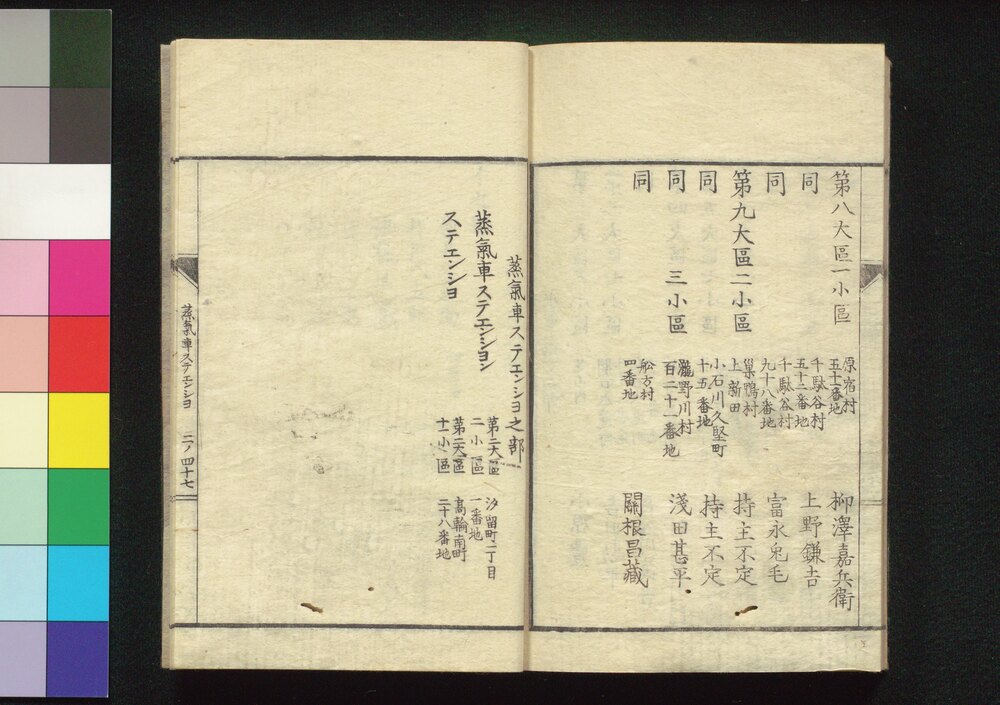 第八大區一小區 原宿村五十一番地 柳澤嘉兵衛
同 千駄谷村五十二番地 上野鎌吉
同 千駄谷村九十八番地 富永兎毛
第九大區二小區 巣鴨村上新田 持主不定
同 小石川久堅町十五番地 持主不定
同 三小區 瀧野川村百二十一番地 淺田甚平
同 舩方村四番地 關根昌藏
蒸氣車ステエンシヨ之部
蒸氣車ステエンシヨン 第二大區二小區 汐留町二丁目一番地
ステエンシヨ 第二大區十一小區 高輪南町二十八番地
蒸氣車ステエンシヨ 二ノ四十七